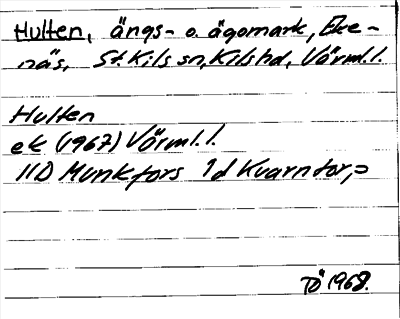 Hulten, ängs- o. ägomark, Eke-
näs, St. Kils sn, Kils hd, Värml. l.
Hulten
ek (1967) Värml. l.
11D Munkfors 1d Kvarntorp
TÖ 1968.